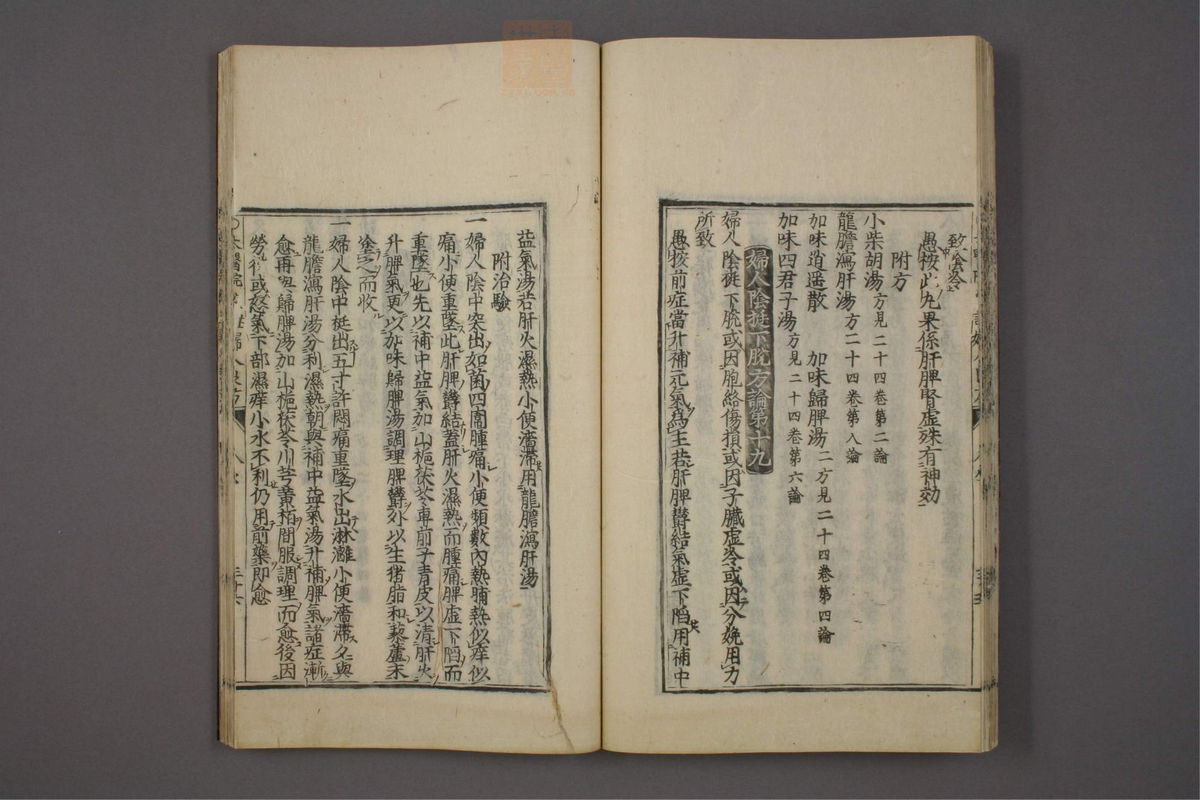 致陰冷
愚按此丸果係肝脾腎虚殊有神効
附方
小柴胡湯方見二十四卷第二論
龍膽瀉肝湯方二十四卷第八論
加味逍遥散 加味歸脾湯二方見二十四卷第四論
加味四君子湯方見二十四卷第六論
婦人陰挺下脱方論第十九
婦人陰挺下脱或因胞絡傷損或因子臓虚冷或因分娩用力
所致
愚按前症當升補元氣爲主若肝脾欝結氣虚下陷用補中
益氣湯若肝火濕熱小便濇滯用龍膽瀉肝湯
附治驗
一婦人陰中突出如菌四圍腫痛小便頻數內熱晡熱似痒似
痛小便重墜此肝脾欝結蓋肝火濕熱而腫痛脾虚下陷而
重墜也先以補中益氣加山梔茯苓車前子青皮以清肝火
升脾氣更以加味歸脾湯調理脾欝外以生猪脂和藜蘆末
塗之而收
一婦人陰中挺出五寸許悶痛重墜水出淋灕小便濇滯夕與
龍膽瀉肝湯分利濕熱朝與補中益氣湯升補脾氣諸症漸
愈再與歸脾湯加山梔茯苓川芎黄栢間服調理而愈後因
勞役或怒氣下部濕痒小水不利仍用前藥即愈